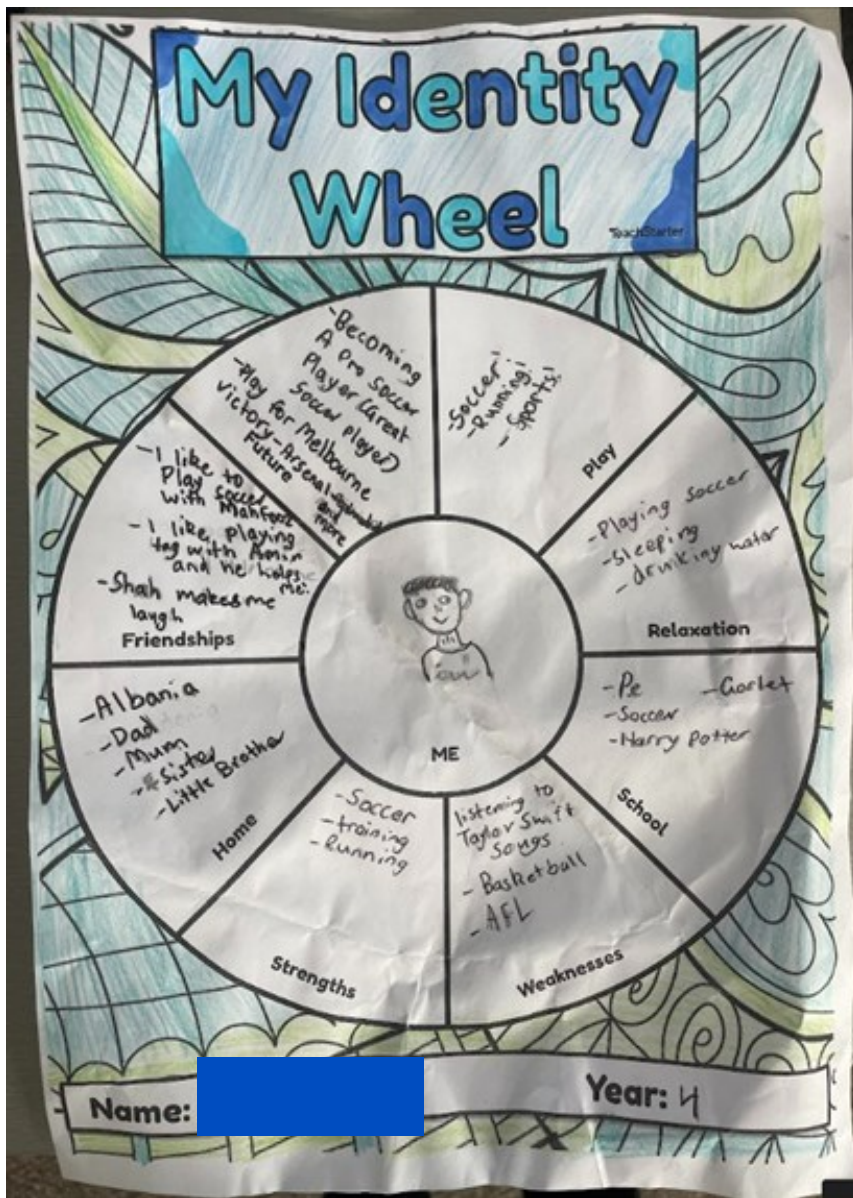 My Identity
Wheel
TeachStarter
-Becoming
A Pro Soccer
Player (Great
Soccer player)
-Play for Melbourne
victory-Arsenal
and
more
Future
-Soccer!
-Running!
-Sports!
Play
-Playing soccer
-Sleeping
-drinking water
Relaxation
-Pe
-Soccer
-Harry Potter
School
listening to
Taylor Swift
Songs
-Basketball
-AFL
Weaknesses
-Soccer
-training
-Running
Strengths
-Albania
-Dad
-Mum
-Sister
-Little Brother
Home
-I like to
Play soccer
with
-I like playing
tag with Amin
and he helps
me.
-Shah makes me
laugh
Friendships
ME
Name:
Year: 4